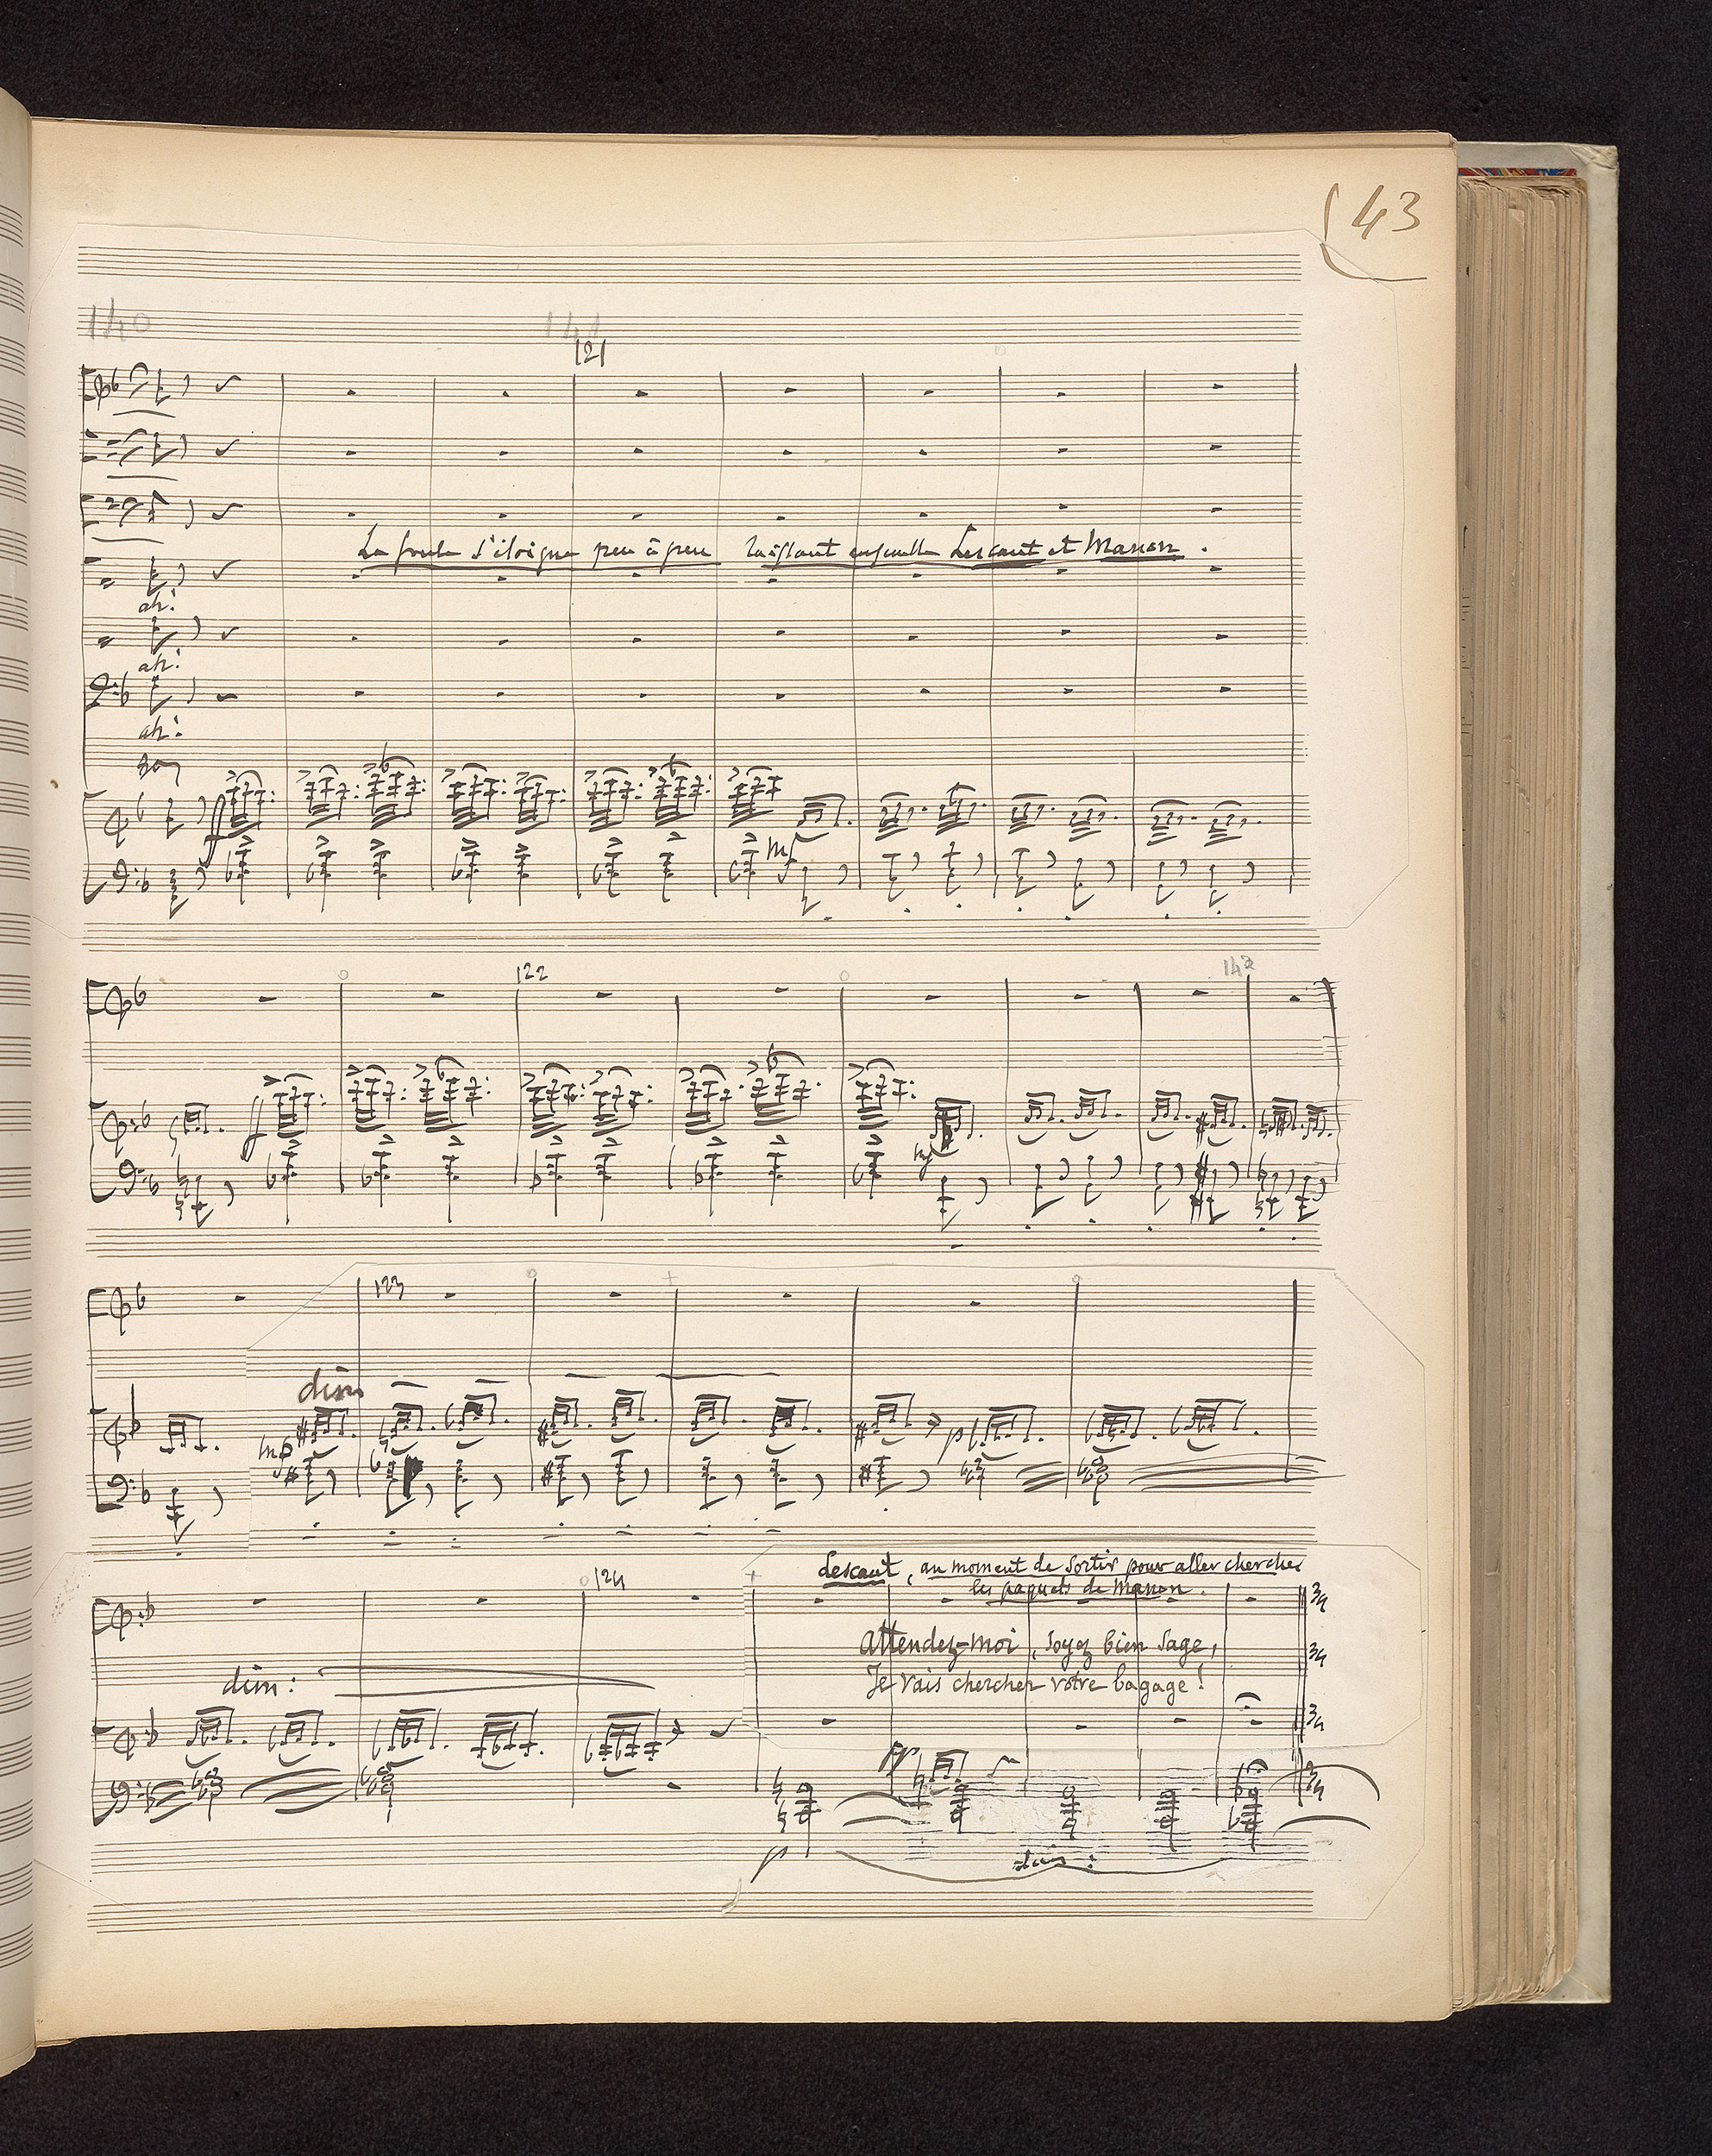 143
140 141
121
La foule s'éloigne peu à peu laissant ensemble Lescaut et Manon.
ah!
ah!
ah!
ff
mf
122 142
ff
mf
123
dim
mp
p
124
Lescaut, au moment de sortir pour aller chercher
les paquets de Manon.
3/4
Attendez-moi, soyez bien sage,
3/4
Je vais chercher votre bagage!
dim:
3/4
pp
3/4
p
dim: